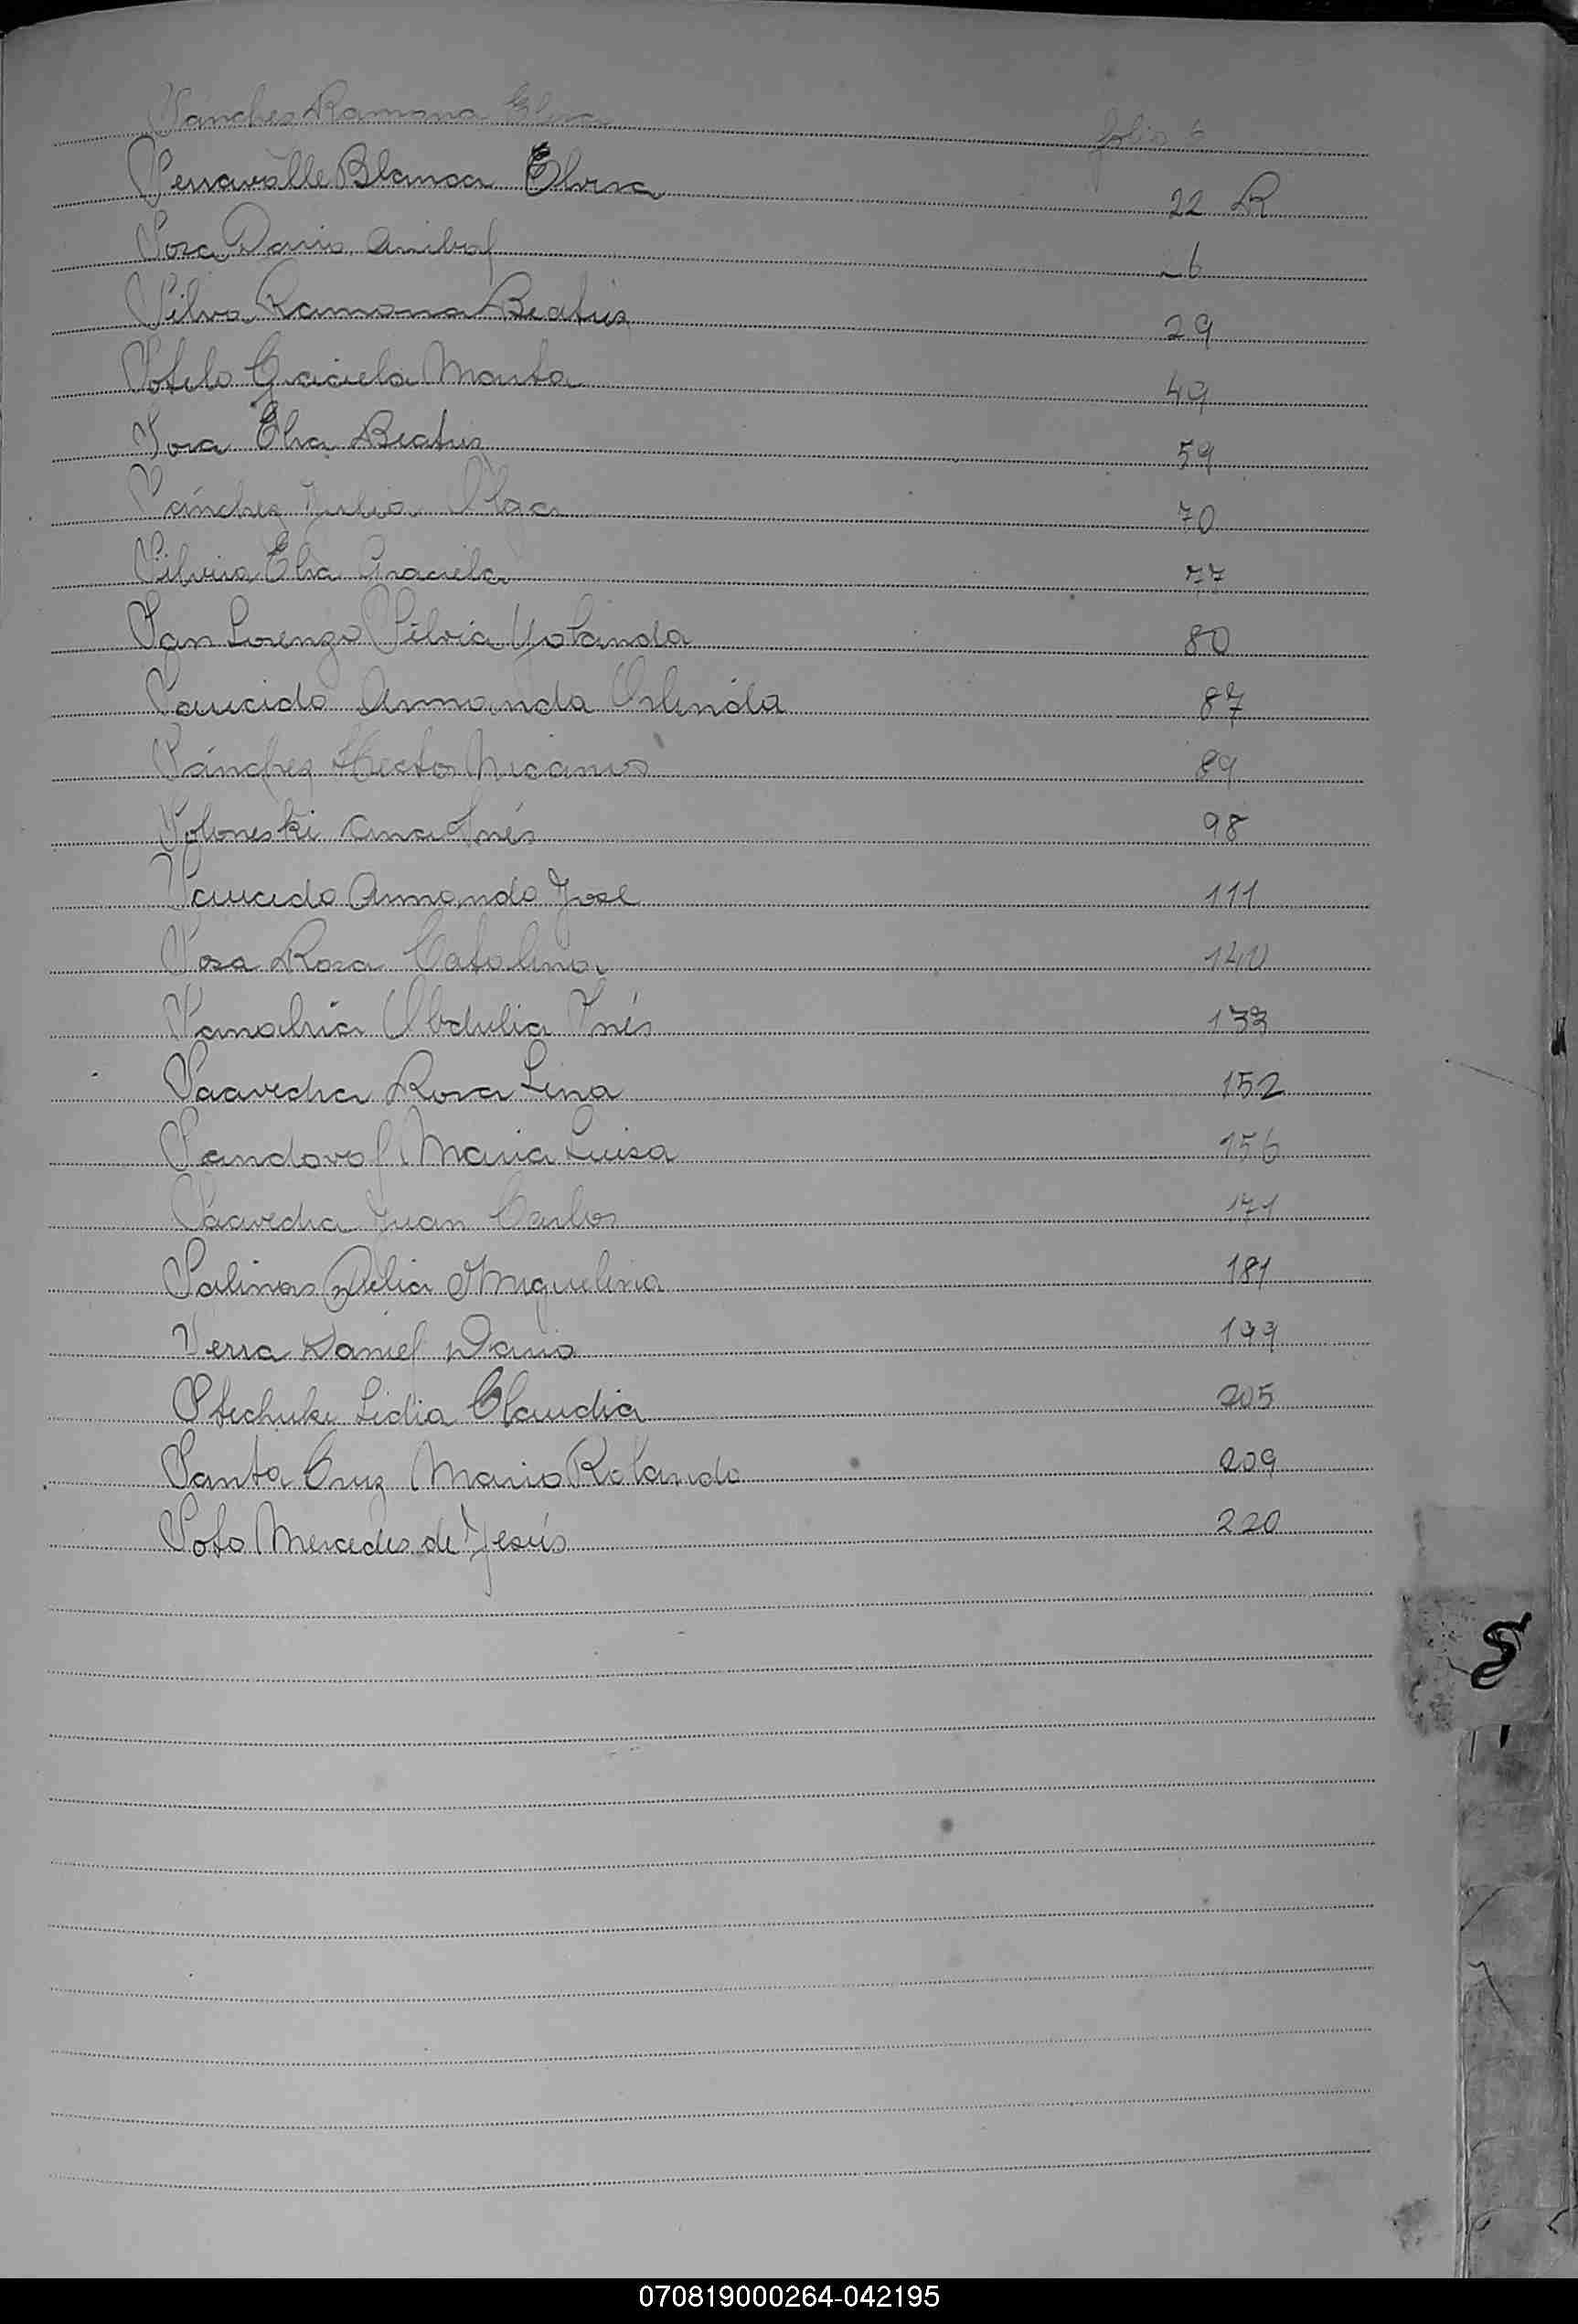 Sanches Ramona Elisa folio 6
Serravalle Blanca Elvira 22 R
Sosa Dario Anibal 6
Silva Ramona Beatris 29
Sotelo Graciela Marta 49
Sosa Elsa Beatris 59
Sánchez Julia Olga 70
Silvira Elsa Graciela 77
San Lorenzo Silvia Yolanda 80
Saucido Armanda Orlinda 87
Sánchez Hector Nicanor 89
Soloneski Ana Inés 98
Saucedo Armando José 111
Sosa Rosa Catalina
Sanabria Obdulia Inés 133
Saavedra Rosa Lina 152
Sandoval Maria Luisa 156
Saavedra Juan Carlos 171
Salinas Delia Miguelina 181
Serra Daniel Dario 199
Stechuke Lidia Claudia 205
Santa Cruz Mario Rolando 209
Soto Mercedes de Jesús 220
S
070819000264-042195